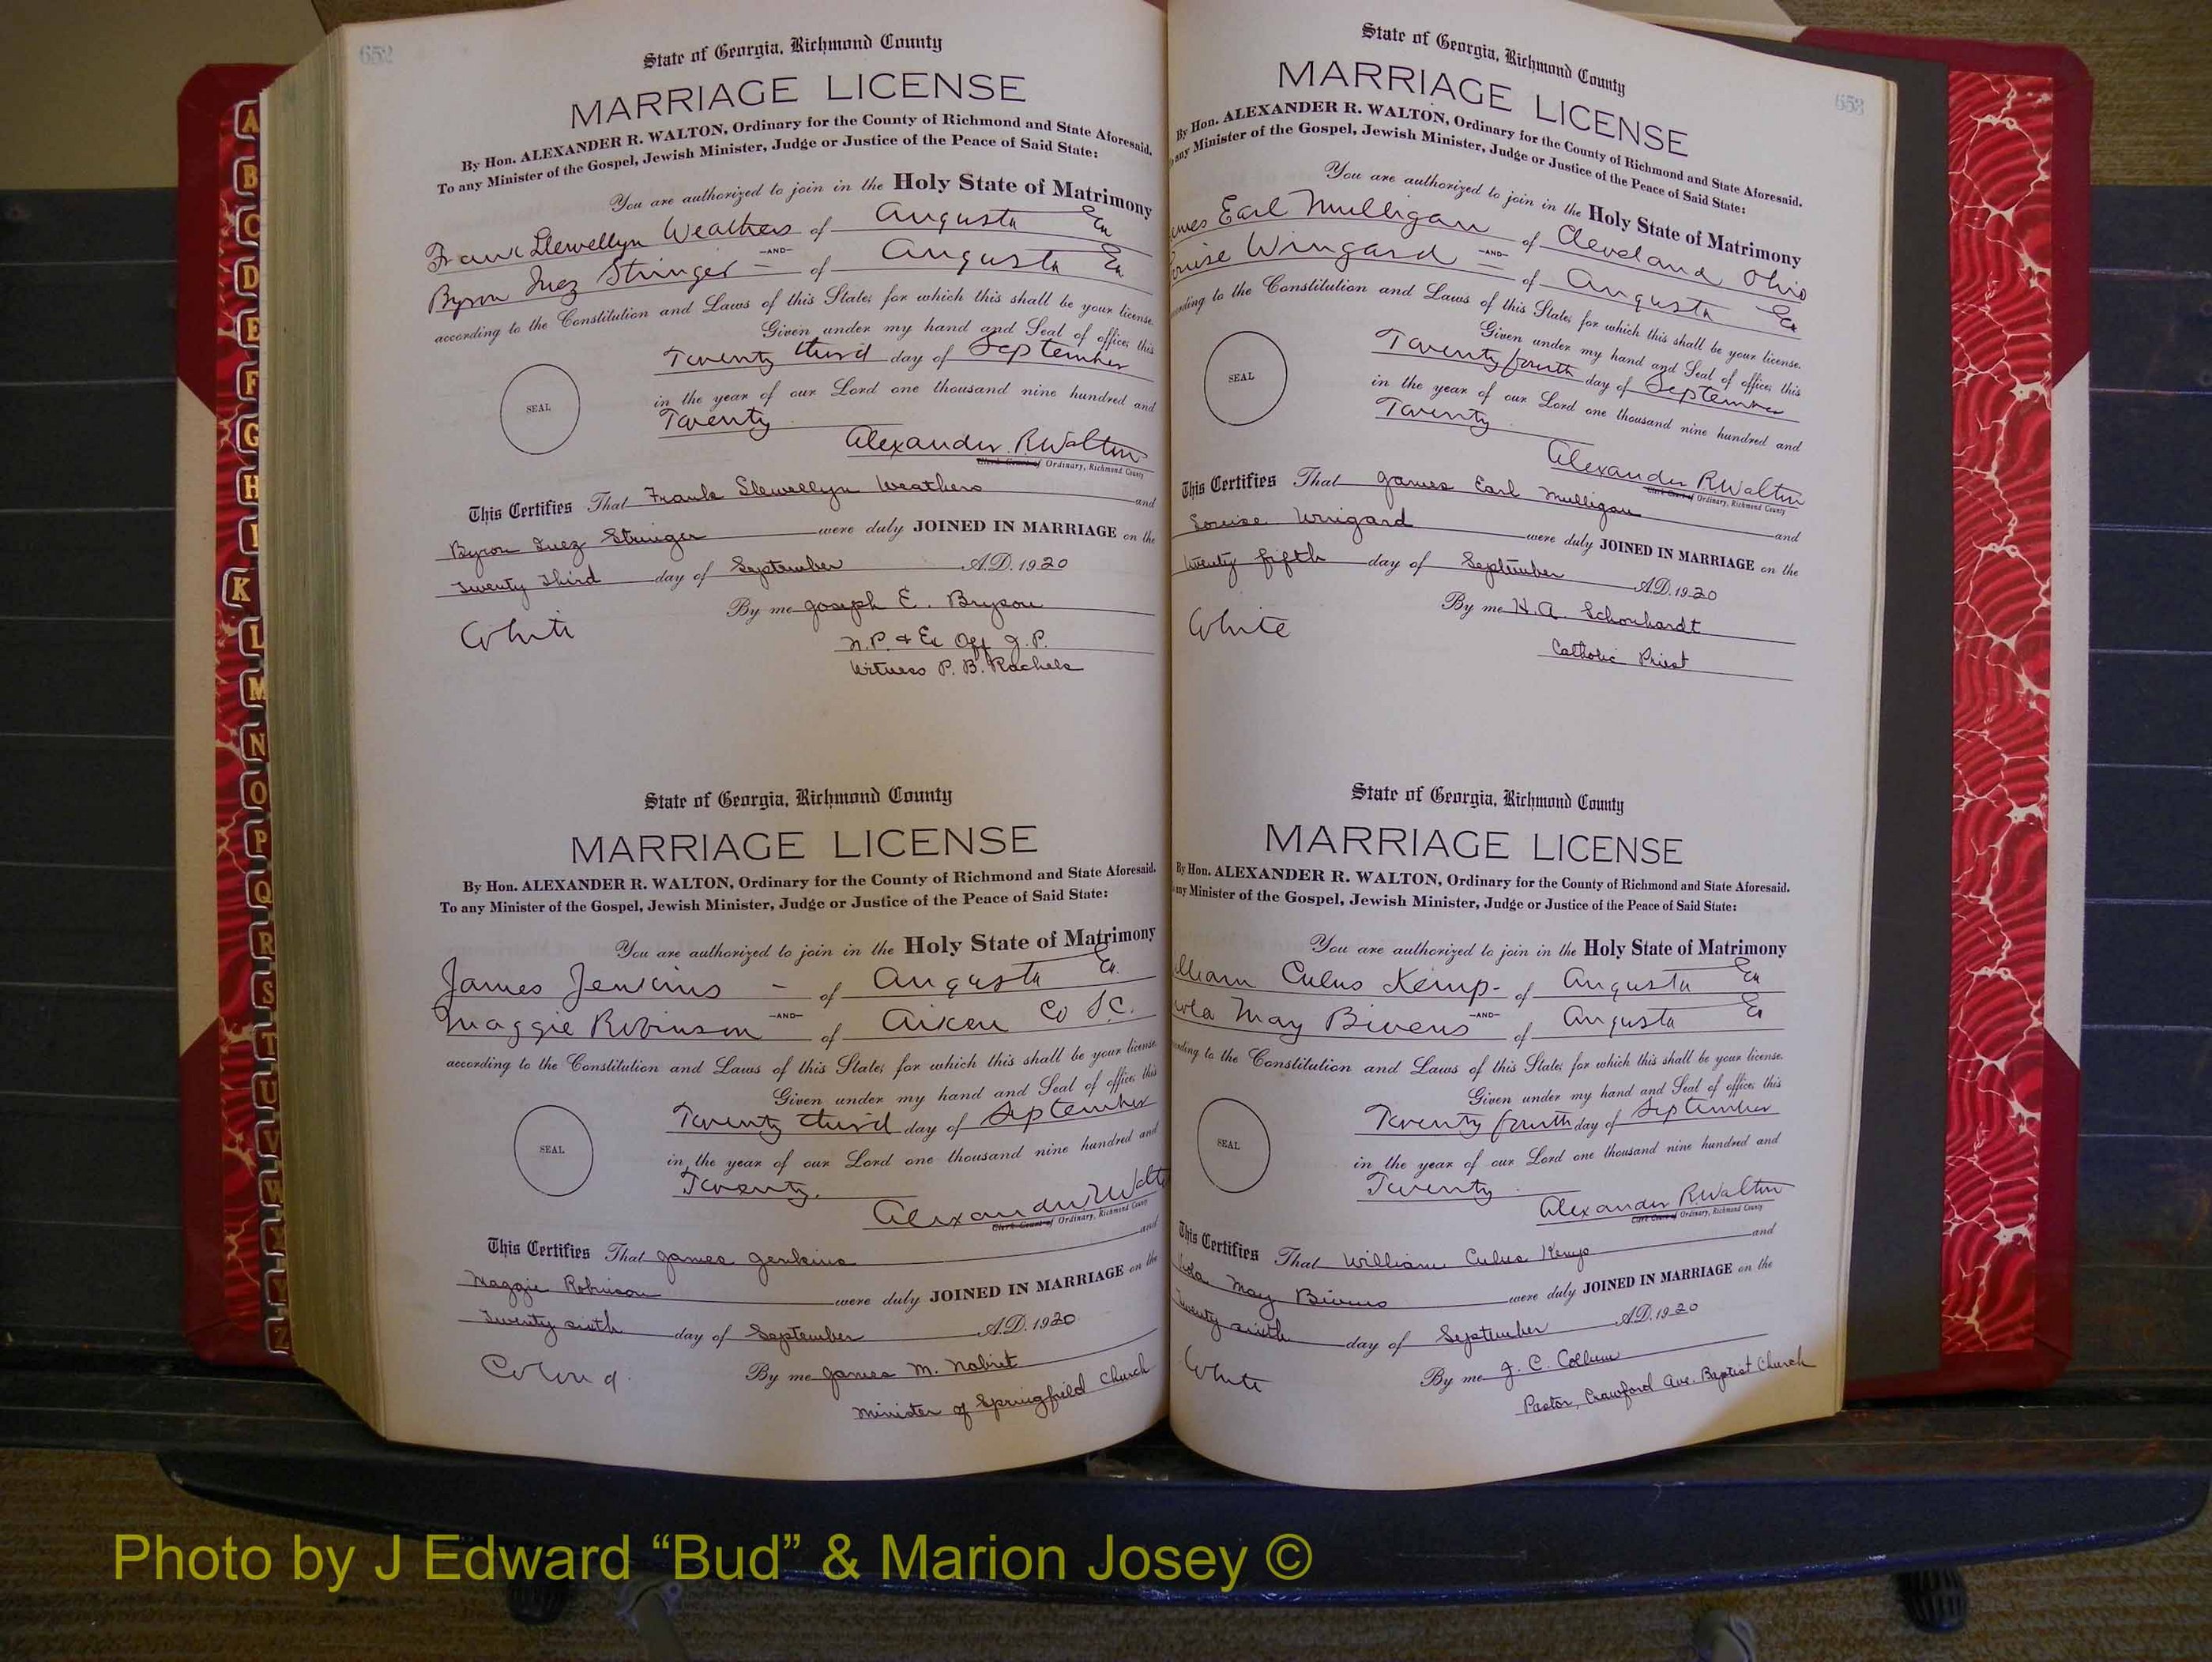 652
State of Georgia, Richmond County
MARRIAGE LICENSE
By Hon. ALEXANDER R. WALTON, Ordinary for the County of Richmond and State Aforesaid.
To any Minister of the Gospel, Jewish Minister, Judge or Justice of the Peace of Said State:
You are authorized to join in the Holy State of Matrimony
Frank Llewellyn Weathers of Augusta Ga
—AND—
Byron Inez Stringer of Augusta Ga
according to the Constitution and Laws of this State; for which this shall be your license.
Given under my hand and Seal of office, this
Twenty third day of September
in the year of our Lord one thousand nine hundred and
Twenty
SEAL
Alexander R Walton
Clerk Court of Ordinary, Richmond County
This Certifies That Frank Llewellyn Weathers and
Byron Inez Stringer were duly JOINED IN MARRIAGE on the
Twenty Third day of September A.D. 1920
By me Joseph E. Bryson
White
N.P. & Ex Off J.P.
Witness P. B. Rachels
State of Georgia, Richmond County
MARRIAGE LICENSE
By Hon. ALEXANDER R. WALTON, Ordinary for the County of Richmond and State Aforesaid.
To any Minister of the Gospel, Jewish Minister, Judge or Justice of the Peace of Said State:
You are authorized to join in the Holy State of Matrimony
James Jenkins - of Augusta Ga.
—AND—
Maggie Robinson of Aiken Co S.C.
according to the Constitution and Laws of this State; for which this shall be your license.
Given under my hand and Seal of office, this
Twenty third day of September
in the year of our Lord one thousand nine hundred and
Twenty.
SEAL
Alexander R Walto
Clerk Court of Ordinary, Richmond County
This Certifies That James Jenkins and
Maggie Robinson were duly JOINED IN MARRIAGE on the
Twenty sixth day of September A.D. 1920
Colored. By me James M. Nabrit
Minister of Springfield Church
653
State of Georgia, Richmond County
MARRIAGE LICENSE
By Hon. ALEXANDER R. WALTON, Ordinary for the County of Richmond and State Aforesaid.
any Minister of the Gospel, Jewish Minister, Judge or Justice of the Peace of Said State:
You are authorized to join in the Holy State of Matrimony
ames Earl Mulligan of Cleveland Ohio
—AND—
ouise Wingard of Augusta Ga
ording to the Constitution and Laws of this State; for which this shall be your license.
Given under my hand and Seal of office, this
Twenty fourth day of September
in the year of our Lord one thousand nine hundred and
Twenty
SEAL
Alexander R Walton
Clerk Court of Ordinary, Richmond County
This Certifies That James Earl Mulligan and
Louise Wingard were duly JOINED IN MARRIAGE on the
twenty fifth day of September A.D. 1920
By me H. A. Schonhardt
White
Catholic Priest
State of Georgia, Richmond County
MARRIAGE LICENSE
By Hon. ALEXANDER R. WALTON, Ordinary for the County of Richmond and State Aforesaid.
any Minister of the Gospel, Jewish Minister, Judge or Justice of the Peace of Said State:
You are authorized to join in the Holy State of Matrimony
lliam Culus Kemp - of Augusta Ga
—AND—
May Bivens of Augusta Ga
ording to the Constitution and Laws of this State; for which this shall be your license.
Given under my hand and Seal of office, this
Twenty fourth day of September
in the year of our Lord one thousand nine hundred and
Twenty
SEAL
Alexander R Walton
Clerk Court of Ordinary, Richmond County
This Certifies That William Culus Kemp and
May Bivens were duly JOINED IN MARRIAGE on the
Twenty sixth day of September A.D. 1920
White By me J. C. Collum
Pastor, Crawford Ave. Baptist Church
A
B
C
D
E
F
G
H
I
K
L
M
N
O
P
Q
R
S
T
U
V
W
Z
Photo by J Edward “Bud” & Marion Josey ©